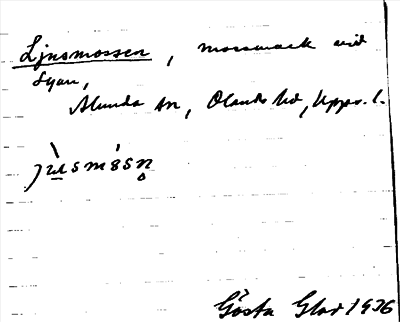 Ljusmossen, mossmark vid
Syan,
Alunda sn, Olands hd, Upps. l.
Gösta Glad 1936